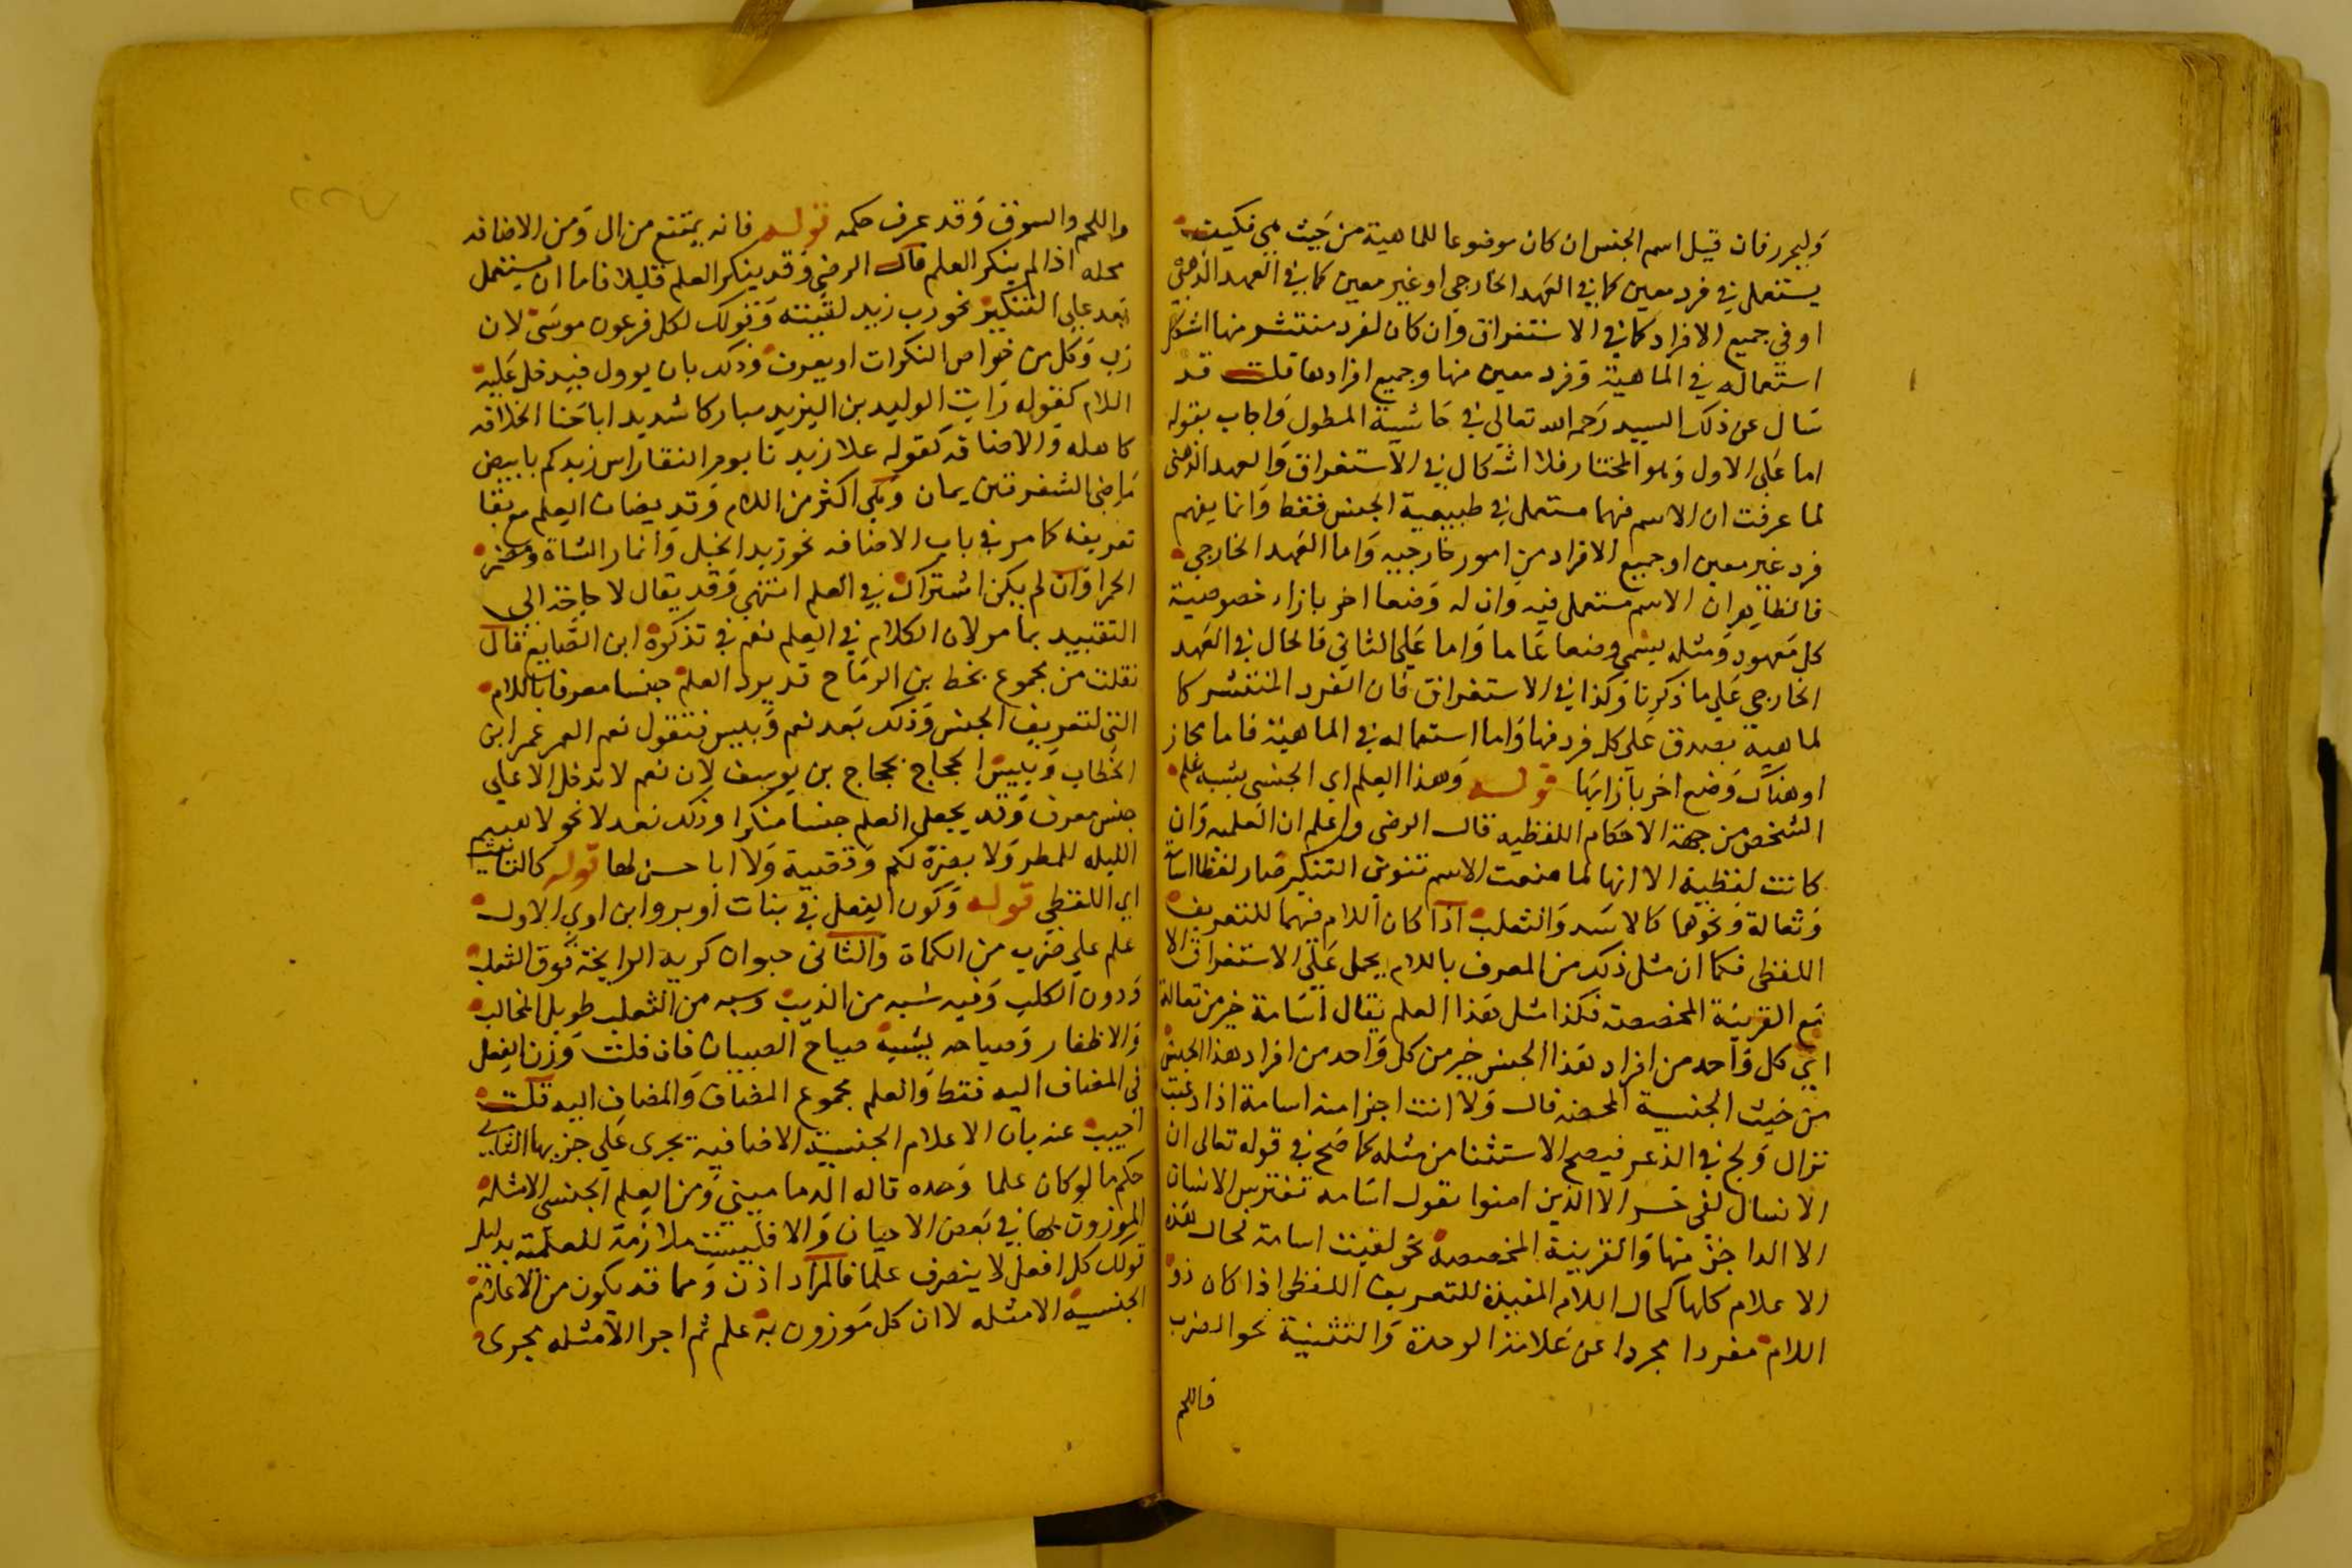 وليحرر فان قيل اسم الجنس ان كان موضوعا للماهية من حيث هي فكيف
يستعمل في فرد معين كما في العهد الخارجي او غير معين كما في العهد الذهني
او في جميع الافراد كما في الاستغراق وان كان لفرد منتشر منها اشكل
استعماله في الماهية وفرد معين منها وجميع افرادها قلت قد
سال عن ذلك السيد رحمه الله تعالى في حاشية المطول واجاب بقوله
اما على الاول وهو المختار فلا اشكال في الاستغراق والعهد الذهني
لما عرفت ان الاسم فيهما مستعمل في طبيعية الجنس فقط وانما يفهم
فرد غير معين او جميع الافراد من امور خارجيه واما العهد الخارجي
فالظاهر ان الاسم مستعمل فيه وان له وضعا اخر بازاء خصوصية
كل معهود ومثله يسمى وضعا عاما واما على الثاني فالحال في العهد
الخارجي على ما ذكرنا وكذا في الاستغراق فان الفرد المنتشر كا
لماهية يصدق على كل فرد فيها واما استعماله في الماهية فاما مجاز
او هناك وضع اخر بازايها قوله وهذا العلم اي الجنسي يشبه علم
الشخص من جهة الاحكام اللفظيه قال الرضي واعلم ان العلميه وان
كانت لفظية الا انها لما منعت الاسم تنوين التنكير صار لفظ اسامة
وثعالة ونحوهما كالاسد والثعلب اذا كان اللام فيهما للتعريف
اللفظي فكما ان مثل ذلك من المعرف باللام يحمل على الاستغراق الا
مع القرينة المخصصة فكذا مثل هذا العلم يقال اسامة خير من ثعالة
اي كل واحد من افراد هذا الجنس خير من كل واحد من افراد هذا الجنس
من حيث الجنسية المحضه قال ولا انت اجرا من اسامة اذا دعيت
نزال ولج في الذعر فيصح الاستثنا من مثله كما صح في قوله تعالى ان
الانسان لفي خسر الا الذين امنوا تقول اسامه تفترس الانسان
الا الداجن منها والقرينة المخصصة نحو لقيت اسامة فحال هذه
الاعلام كلها كحال اللام المفيدة للتعريف اللفظي اذا كان ذو
اللام مفردا مجردا عن علامة الوحدة والتثنية نحو الضرب
فاللحم
واللحم والسوق وقد عرف حكمه قوله فانه يمتنع من ال ومن الاضافه
محله اذا لم ينكر العلم قال الرضي وقد ينكر العلم قليلا فاما ان يستعمل
بعد على التنكير نحو رب زيد لقيته وقولك لكل فرعون موسى لان
رب وكل من خواص النكرات او يعرف وذلك بان يوول فيدخل عليه
اللام كقوله رايت الوليد بن اليزيد مباركا شديدا باحنا الخلافه
كاهله والاضافه كقوله علا زيدنا يوم النقا راس زيدكم بابيض
ماضي الشفرتين يمان وهي اكثر من اللام وقد يضاف العلم مع بقا
تعريفه كما مر في باب الاضافه نحو زيد الخيل وانمار الشاة ومضر
الحمرا وان لم يكن اشتراك في العلم انتهى وقد يقال لا حاجة الى
التقييد بما مر لان الكلام في العلم نعم في تذكرة ابن الصايغ قال
نقلت من مجموع بخط بن الرماح قد يرد العلم جنسا معرفا باللام
التي لتعريف الجنس وذلك بعد نعم وبيس فتقول نعم العمر عمر ابن
الخطاب وبيس الحجاج حجاج بن يوسف لان نعم لا تدخل الا على
جنس معرف وقد يجعل العلم جنسا منكرا وذلك نعد لا نحو لا هيثم
الليله للمطي ولا بصرة لكم وقضية ولا ابا حسن لها قوله كالتانيث
اي اللفظي قوله وكون الفعل في بنات اوبر وابن اوى الاول
علم على ضرب من الكماة والثاني حيوان كريه الرايحة فوق الثعلب
ودون الكلب وفيه شبه من الذيب وشبه من الثعلب طويل المخالب
والاظفار وصياحه يشبه صياح الصبيان فان قلت وزن الفعل
في المضاف اليه فقط والعلم مجموع المضاف والمضاف اليه قلت
اجيب عنه بان الاعلام الجنسية الاضافية يجرى على جزيها الثاني
حكم ما لو كان علما وحده قاله الدماميني ومن العلم الجنسي الامثله
الموزون بها في بعض الاحيان والا فليست ملازمة للعلمية بدليل
قولك كل افعل لا ينصرف علما فالمراد اذن ومما قد يكون من الاعلام
الجنسية الامثله لا ان كل موزون به علم ثم اجرا الامثله مجرى